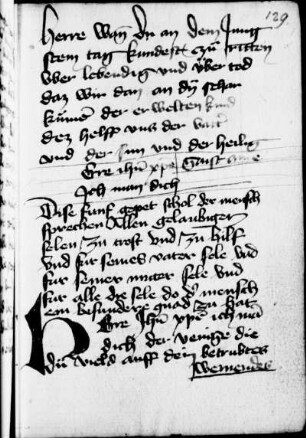 129
herre wan du an dem Jung
stem tag kundest zu ritten
vber lebendig vnd vber tod
daz wir dan an dy schar
kumē der erwelten kind
dez helff vns der vatt
vnd der sun vnd der heilig
Ere ihū xpē Gaist ame
Ich man dich
Dise funf gepet schol der mensch
sprechen Allen gelaubigen
selen zu trost vnd zu hilf
Vnd fur seines vater sele vnd
fur seiner muter sele vnd
fur alle die sele do der mensch
ein besundere gnad zu hat
Here Jhū xpē ich man
dich der venige die
du vield auff dein betrubtes
wemendes